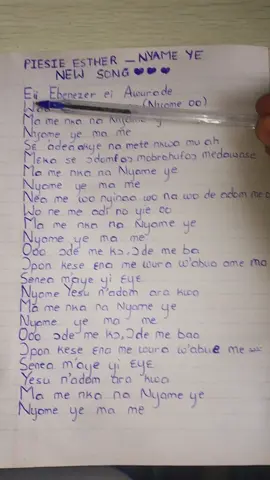 PIESIE ESTHER – NYAME YE
NEW SONG
Eii Ebenezer ei Awurade
(Nyame oo)
Ma me nka na Nyame ye
Nyame ye ma me
Se adeakye na mete nkwa mu ah
Meka se ɔdomfoɔ mobrohufoɔ medawase
Ma me nka na Nyame ye
Nyame ye ma me
Nea me wo nyinaa wo na wo de adom me
Wo ne me adi no yie oo
Ma me nka na Nyame ye
Nyame ye ma me
Ooo ɔde me kɔ, ɔde me ba
Ɔpon kese ɛna me wura w'abue ama ma
Senea m'aye yi ɛyɛ
Nyame Yesu n'adom ara kwa
Ma me nka na Nyame ye
Nyame ye ma me
Ooo ɔde me kɔ, ɔde me baa
Ɔpon kese ɛna me wura w'abue me
Senea m'aye yi ɛyɛ
Yesu n'adom ara kwa
Ma me nka na Nyame ye
Nyame ye ma me